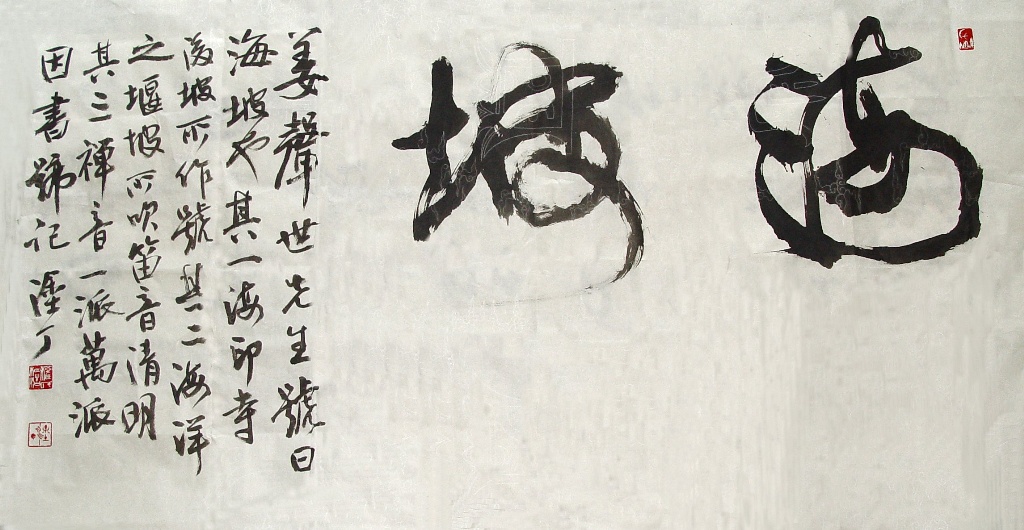 海坡
姜聲世先生號曰
海坡也其一海印寺
後坡所作號其二海洋
之堰坡所吹笛音清明
其三禪音一派萬派
因書號記 丁